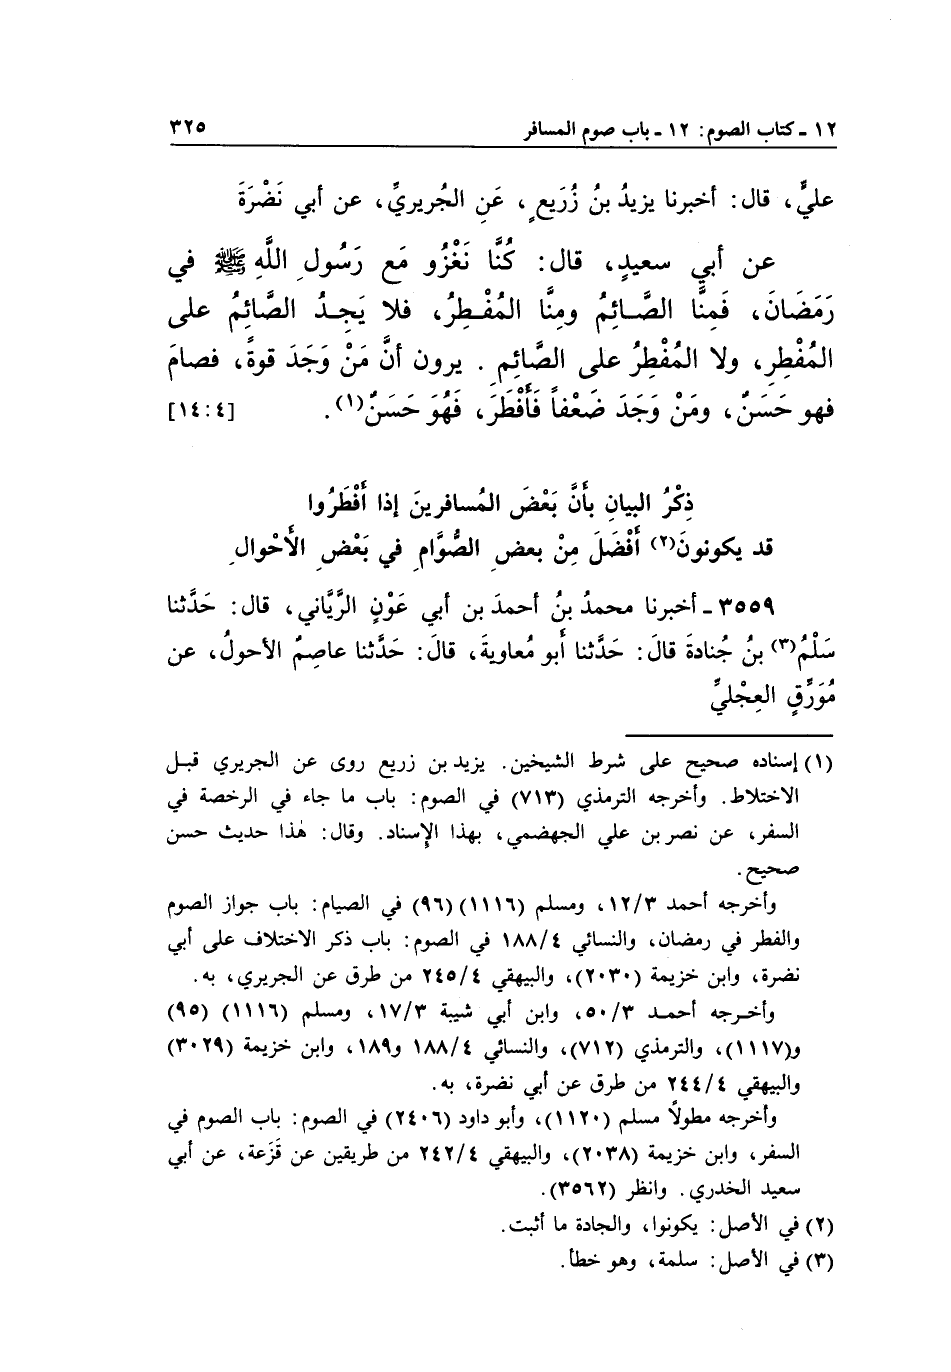 ١٢ ـ كتاب الصوم: ١٢ ـ باب صوم المسافر ٣٢٥
عليٍّ، قال: أخبرنا يزيدُ بنُ زُرَيعٍ، عَنِ الجُريريِّ، عن أبي نَضْرَةَ
عن أبي سعيدٍ، قال: كُنَّا نَغْزُو مَع رَسُولِ اللَّهِ ﷺ في
رَمَضَانَ، فَمِنَّا الصَّائِمُ ومِنَّا المُفْطِرُ، فلا يَجِدُ الصَّائِمُ على
المُفْطِرِ، ولا المُفْطِرُ على الصَّائِمِ. يرون أنَّ مَنْ وَجَدَ قوةً، فصامَ
فهو حَسَنٌ، ومَنْ وَجَدَ ضَعْفاً فَأَفْطَرَ، فَهُوَ حَسَنٌ(١). [٤:١٤]
ذِكْرُ البيانِ بأَنَّ بَعْضَ المُسافرينَ إذا أَفْطَرُوا
قد يكونونَ(٢) أَفْضَلَ مِنْ بعضِ الصُّوَّامِ في بَعْضِ الأَحْوالِ
٣٥٥٩ ـ أخبرنا محمدُ بنُ أحمدَ بن أبي عَوْنٍ الرَّيَّاني، قال: حَدَّثنا
سَلْمُ(٣) بنُ جُنادةَ قالَ: حَدَّثنا أبو مُعاويةَ، قالَ: حَدَّثنا عاصِمٌ الأحولُ، عن
مُوَرِّقٍ العِجْليِّ
(١) إسناده صحيح على شرط الشيخين. يزيد بن زريع روى عن الجريري قبل
الاختلاط. وأخرجه الترمذي (٧١٣) في الصوم: باب ما جاء في الرخصة في
السفر، عن نصر بن علي الجهضمي، بهذا الإسناد. وقال: هٰذا حديث حسن
صحيح.
وأخرجه أحمد ١٢/٣، ومسلم (١١١٦) (٩٦) في الصيام: باب جواز الصوم
والفطر في رمضان، والنسائي ١٨٨/٤ في الصوم: باب ذكر الاختلاف على أبي
نضرة، وابن خزيمة (٢٠٣٠)، والبيهقي ٢٤٥/٤ من طرق عن الجريري، به.
وأخرجه أحمد ٥٠/٣، وابن أبي شيبة ١٧/٣، ومسلم (١١١٦) (٩٥)
و(١١١٧)، والترمذي (٧١٢)، والنسائي ١٨٨/٤ و١٨٩، وابن خزيمة (٣٠٢٩)
والبيهقي ٢٤٤/٤ من طرق عن أبي نضرة، به.
وأخرجه مطولاً مسلم (١١٢٠)، وأبو داود (٢٤٠٦) في الصوم: باب الصوم في
السفر، وابن خزيمة (٢٠٣٨)، والبيهقي ٢٤٢/٤ من طريقين عن قَزَعة، عن أبي
سعيد الخدري. وانظر (٣٥٦٢).
(٢) في الأصل: يكونوا، والجادة ما أثبت.
(٣) في الأصل: سلمة، وهو خطأ.